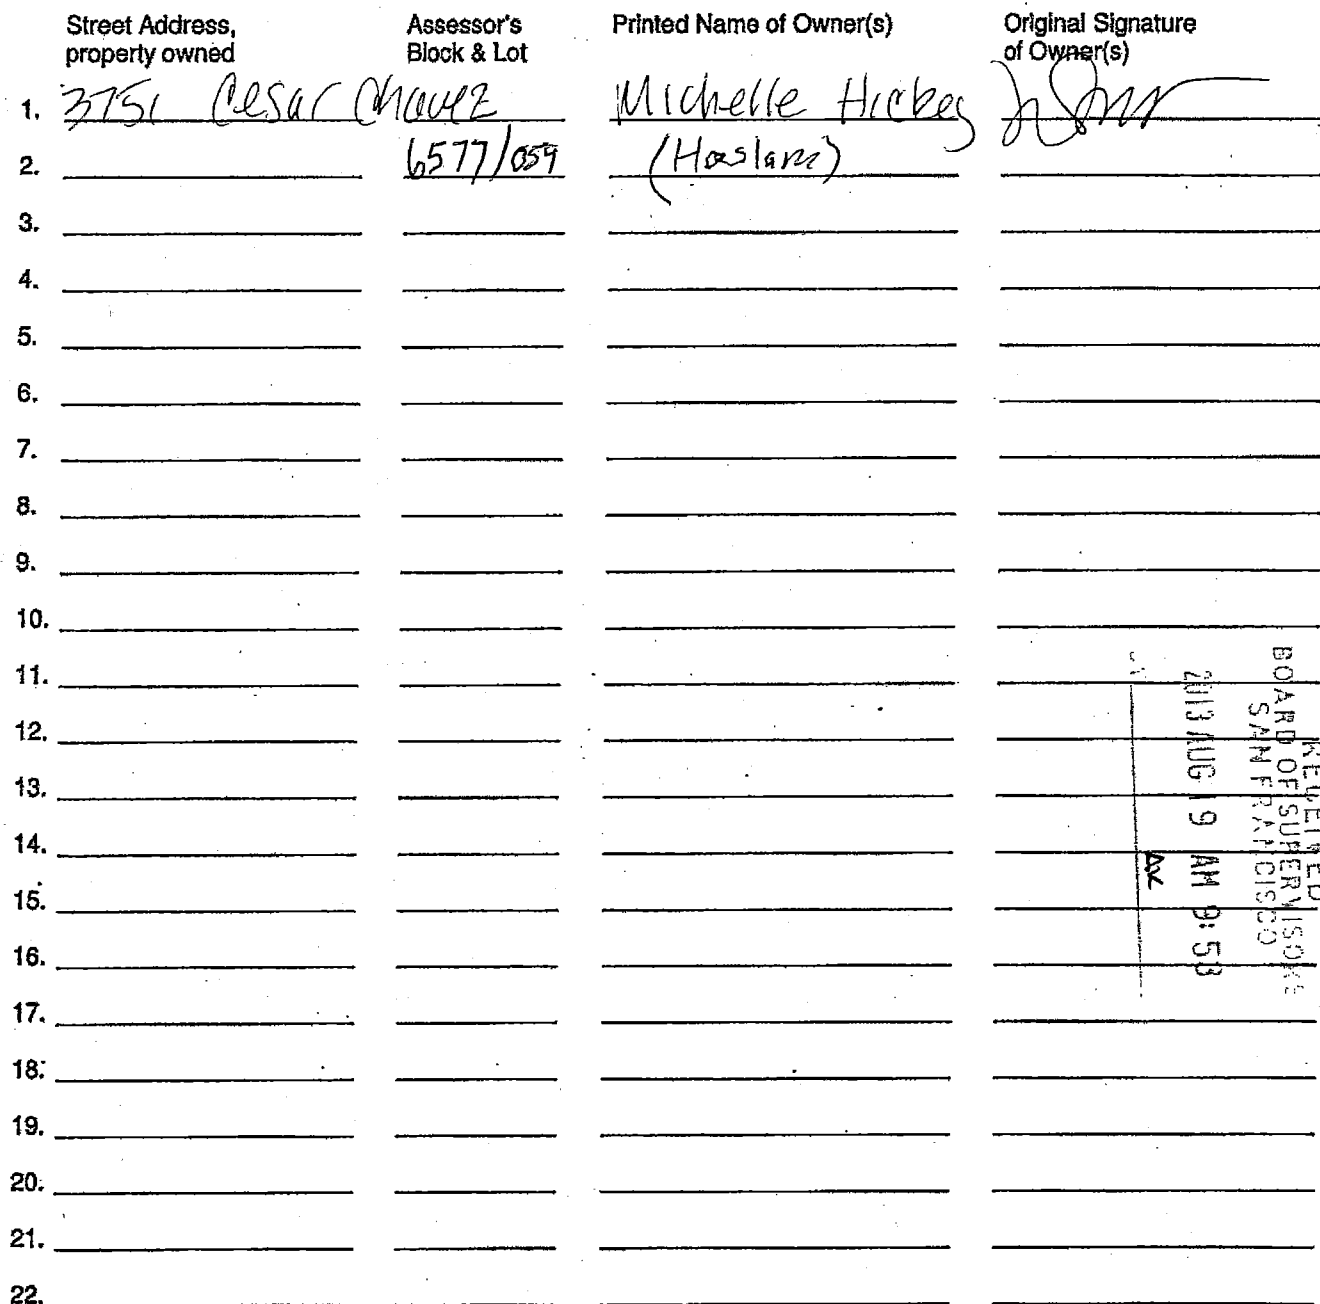 Street Address, property owned
Assessor's Block & Lot
Printed Name of Owner(s)
Original Signature of Owner(s)
1. 3751 Cesar Chavez Michelle Hickey
2. 6577/059 (Haslam)
3.
4.
5.
6.
7.
8.
9.
10.
11.
12.
13.
14.
15.
16.
17.
18.
19.
20.
21.
22.
RECEIVED
BOARD OF SUPERVISORS
SAN FRANCISCO
2013 AUG 19 AM 9:58
AK